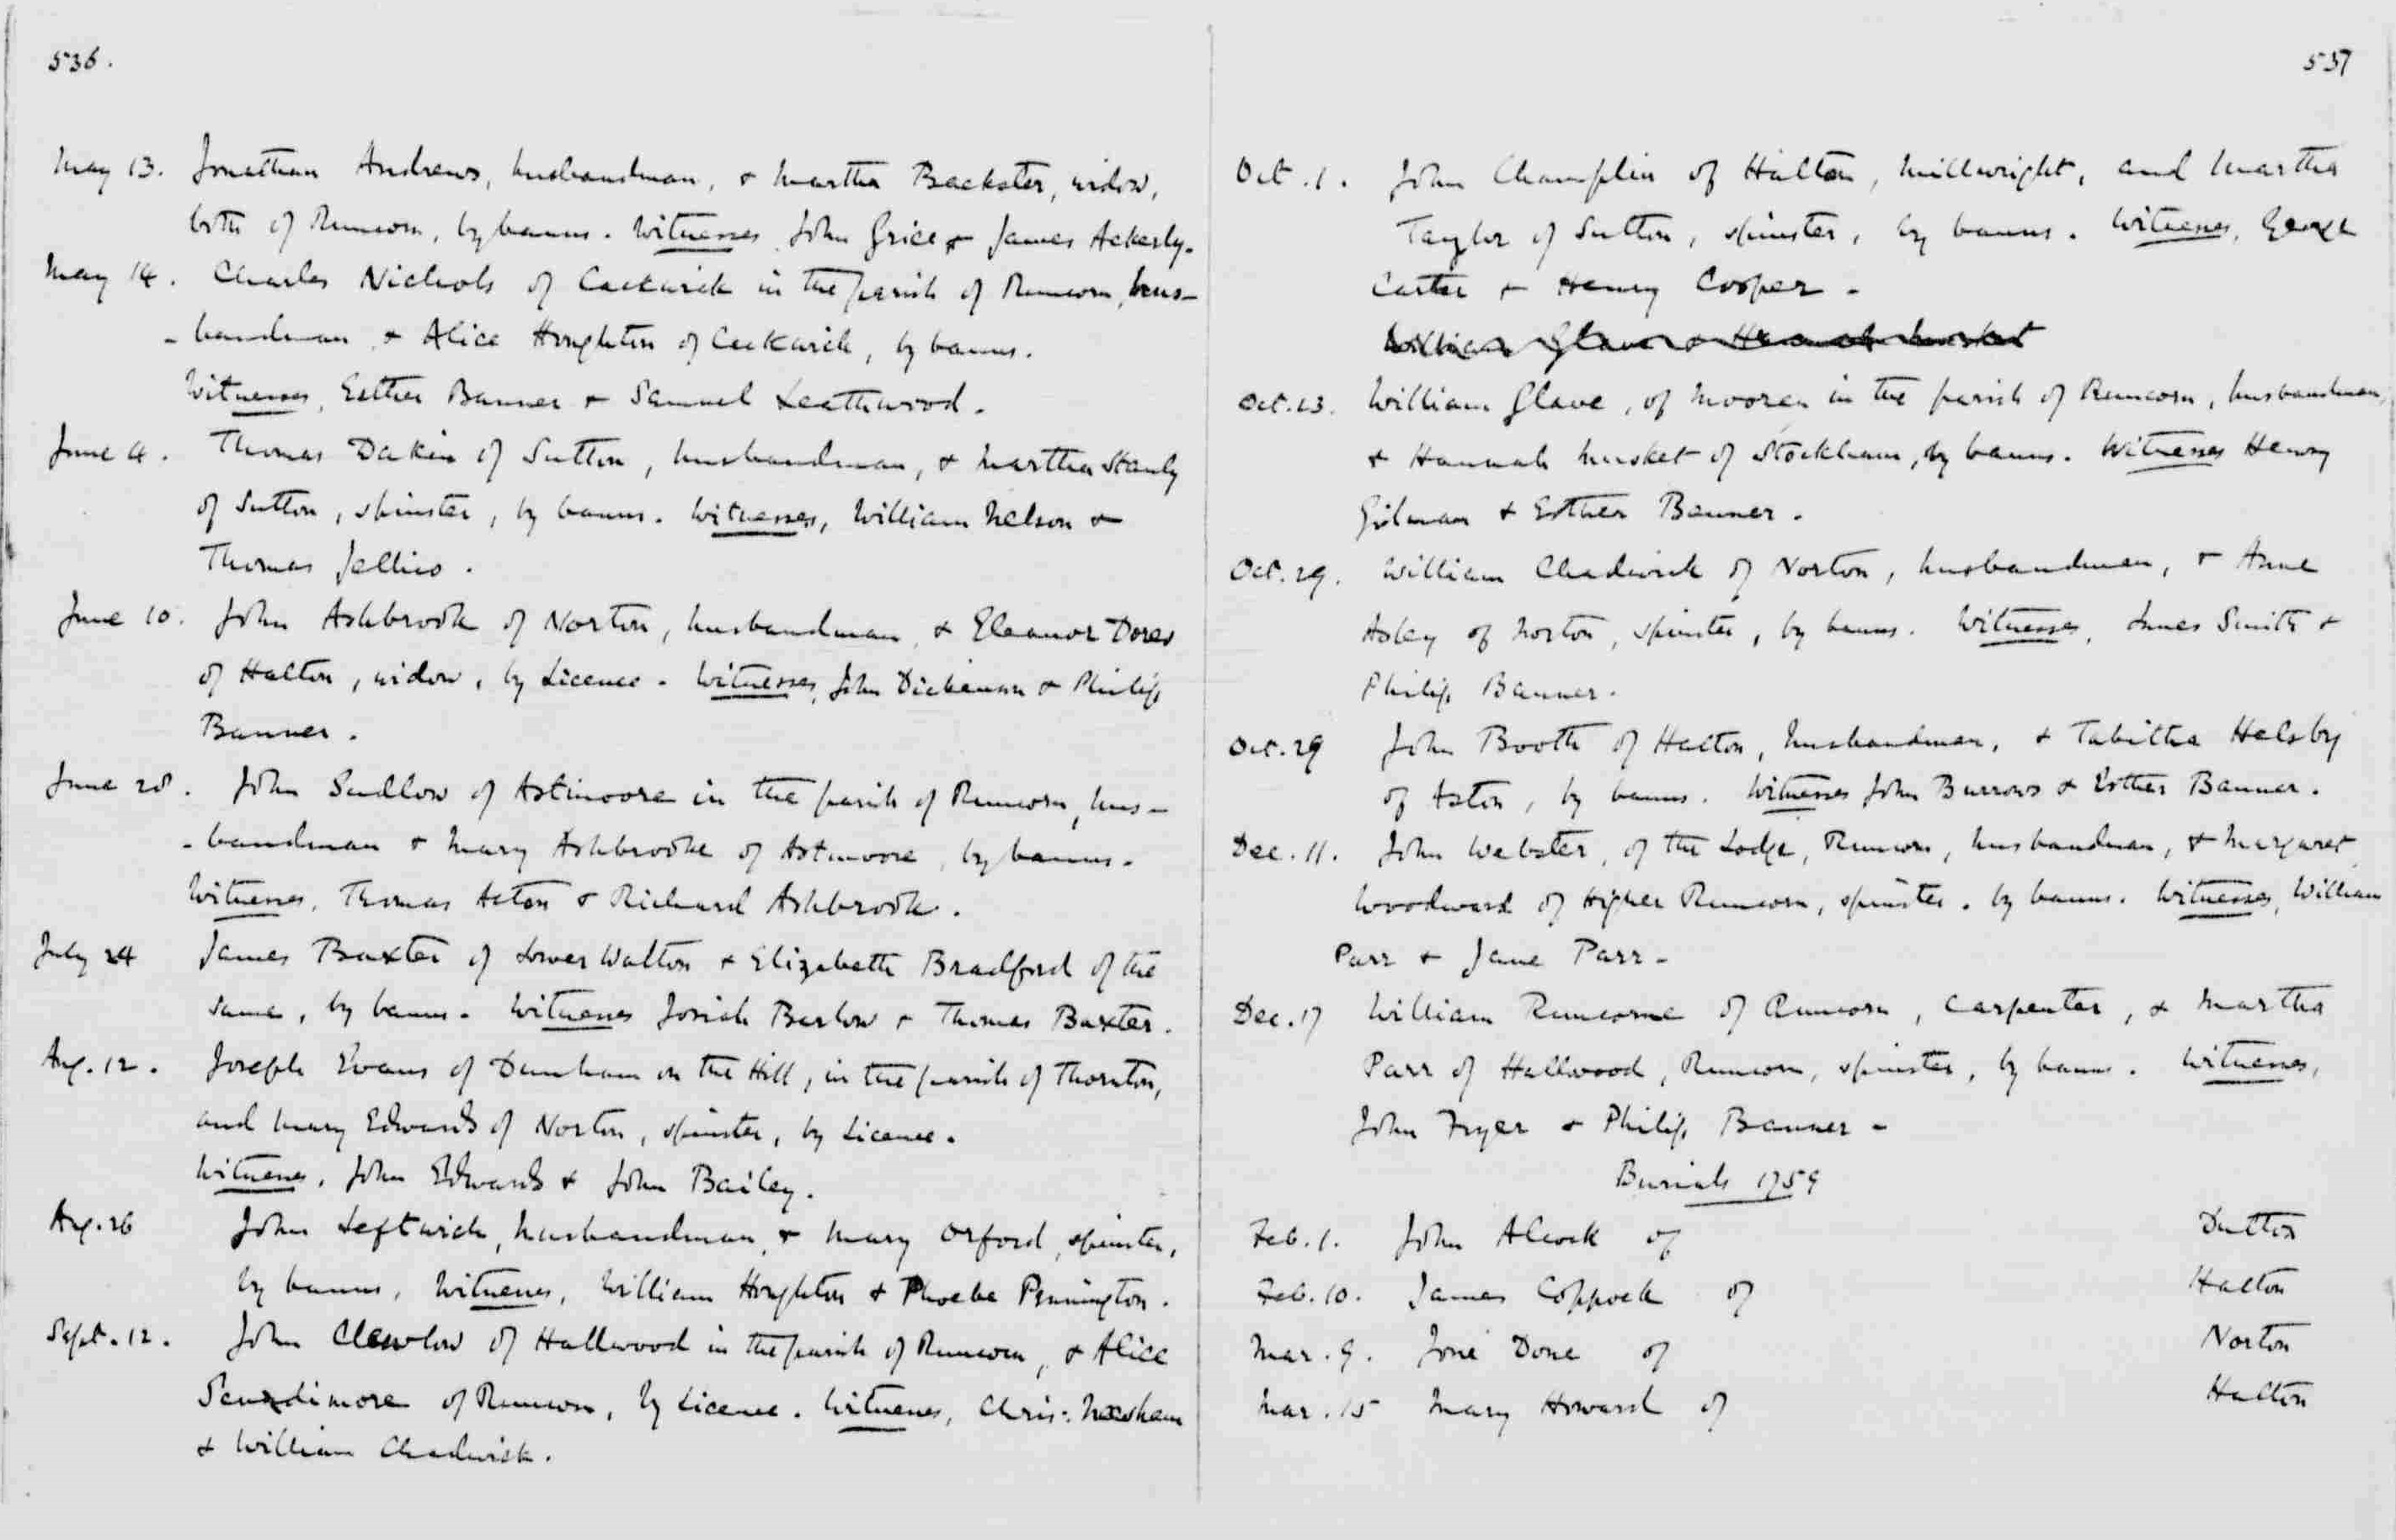 536.
May 13. Jonathan Andrews, husbandman, & Martha Backster, widow,
both of Runcorn, by banns. Witnesses John Grice & James Ackerly.
May 14. Charles Nichols of Cuckwick in the parish of Runcorn, hus-
-bandman & Alice Houghton of Cuckwich, by banns.
Witnesses, Esther Banner & Samuel Leathwood.
June 4. Thomas Dakin of Sutton, husbandman, & Martha Stanly
of Sutton, spinster, by banns. Witnesses, William Nelson &
Thomas Jellico.
June 10. John Ashbrook of Norton, husbandman, & Eleanor Dores
of Halton, widow, by Licence. Witnesses, John Dickenson & Philip
Banner.
June 28. John Sudlow of Astmoore in the parish of Runcorn, hus-
-bandman & Mary Ashbrooke of Astmoore, by banns.
Witnesses, Thomas Acton & Richard Ashbrook.
July 24 James Baxter of Lower Walton & Elizabeth Bradford of the
same, by banns. Witnesses Josiah Barlow & Thomas Baxter.
Aug. 12. Joseph Evans of Dunham on the Hill, in the parish of Thornton,
and Mary Edwards of Norton, spinster, by Licence.
Witnesses, John Edwards & John Bailey.
Aug. 26 John Leftwich, husbandman, & Mary Orford, spinster,
by banns, Witnesses, William Houghton & Phoebe Pennington.
Sept. 12. John Clewlow of Hallwood in the parish of Runcorn, & Alice
of Runcorn, by Licence. Witnesses, Chris:
& William Chadwick.
537
Oct. 1. John Champlin of Halton, Millwright, and Martha
Taylor of Sutton, spinster, by banns. Witnesses, George
Carter & Henry Cooper.
William Glave & Hannah Musket
Oct. 23. William Glave, of Moore in the parish of Runcorn, husbandman,
& Hannah Musket of Stockham, by banns. Witnesses Henry
Gilman & Esther Banner.
Oct. 29. William Chadwick of Norton, husbandman, & Anne
Asley of Norton, spinster, by banns. Witnesses, James Smith &
Philip Banner.
Oct. 29 John Booth of Halton, husbandman, & Tabitha Helsby
of Aston, by banns. Witnesses John Burrows & Esther Banner.
Dec. 11. John Webster, of the Lodge, Runcorn, husbandman, & Margaret
Woodward of Higher Runcorn, spinster, by banns. Witnesses, William
Parr & Jane Parr.
Dec. 17 William Runcorne of Runcorn, Carpenter, & Martha
Parr of Hallwood, Runcorn, spinster, by banns. Witnesses,
John Fryer & Philip Banner.
Burials 1759
Feb. 1. John Alcock of Dutton
Feb. 10. James Coppock of Halton
Mar. 9. Done of Norton
Mar. 15 Mary Howard of Halton